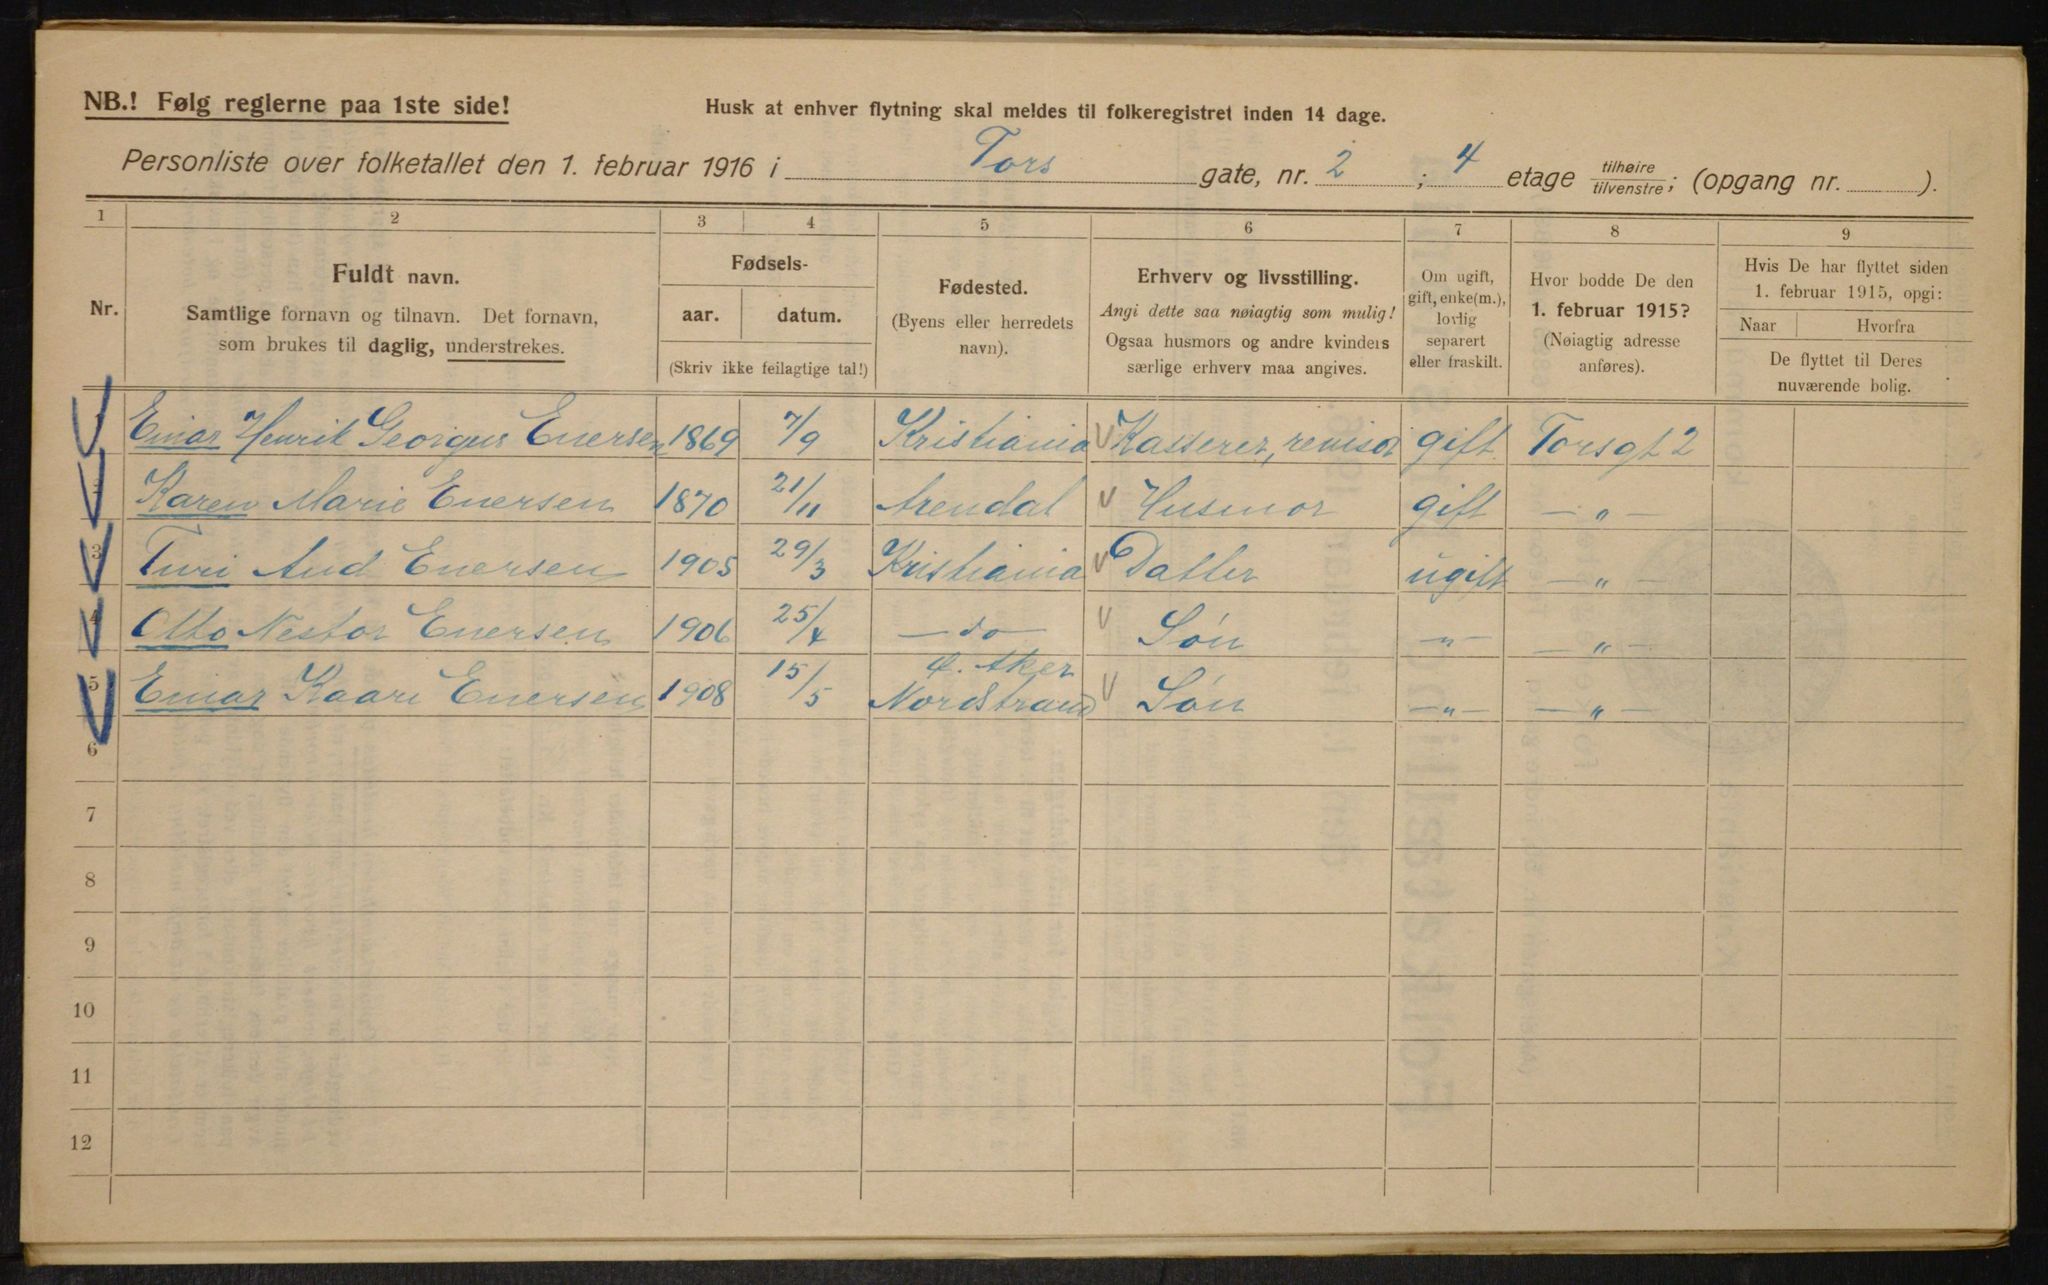 NB.! Følg reglerne paa 1ste side!
Husk at enhver flytning skal meldes til folkeregistret inden 14 dage.
Personliste over folketallet den 1. februar 1916 i Tors gate, nr. 2 ; 4 etage tilhøire/tilvenstre; (opgang nr. ).
1 2 3 4 5 6 7 8 9
Nr.
Fuldt navn.
Samtlige fornavn og tilnavn. Det fornavn,
som brukes til daglig, understrekes.
Fødsels-
aar. datum.
(Skriv ikke feilagtige tal!)
Fødested.
(Byens eller herredets
navn).
Erhverv og livsstilling.
Angi dette saa nøiagtig som mulig!
Ogsaa husmors og andre kvinders
særlige erhverv maa angives.
Om ugift,
gift, enke(m.),
lovlig
separert
eller fraskilt.
Hvor bodde De den
1. februar 1915?
(Nøiagtig adresse
anføres).
Hvis De har flyttet siden
1. februar 1915, opgi:
Naar Hvorfra
De flyttet til Deres
nuværende bolig.
Einar Henrik Georgus Enersen 1869 7/9 Kristiania Kasserer, revisor gift Torsgt 2
Karen Marie Enersen 1870 21/11 Arendal Husmor gift — " —
3 Turi Aud Enersen 1905 29/3 Kristiania Datter ugift — " —
4 Otto Nestor Enersen 1906 25/4 — do — Søn — " — — " —
5 Einar Kaare Enersen 1908 15/5 Ø. Aker Nordstrand Søn — " — — " —
6
7
8
9
10
11
12